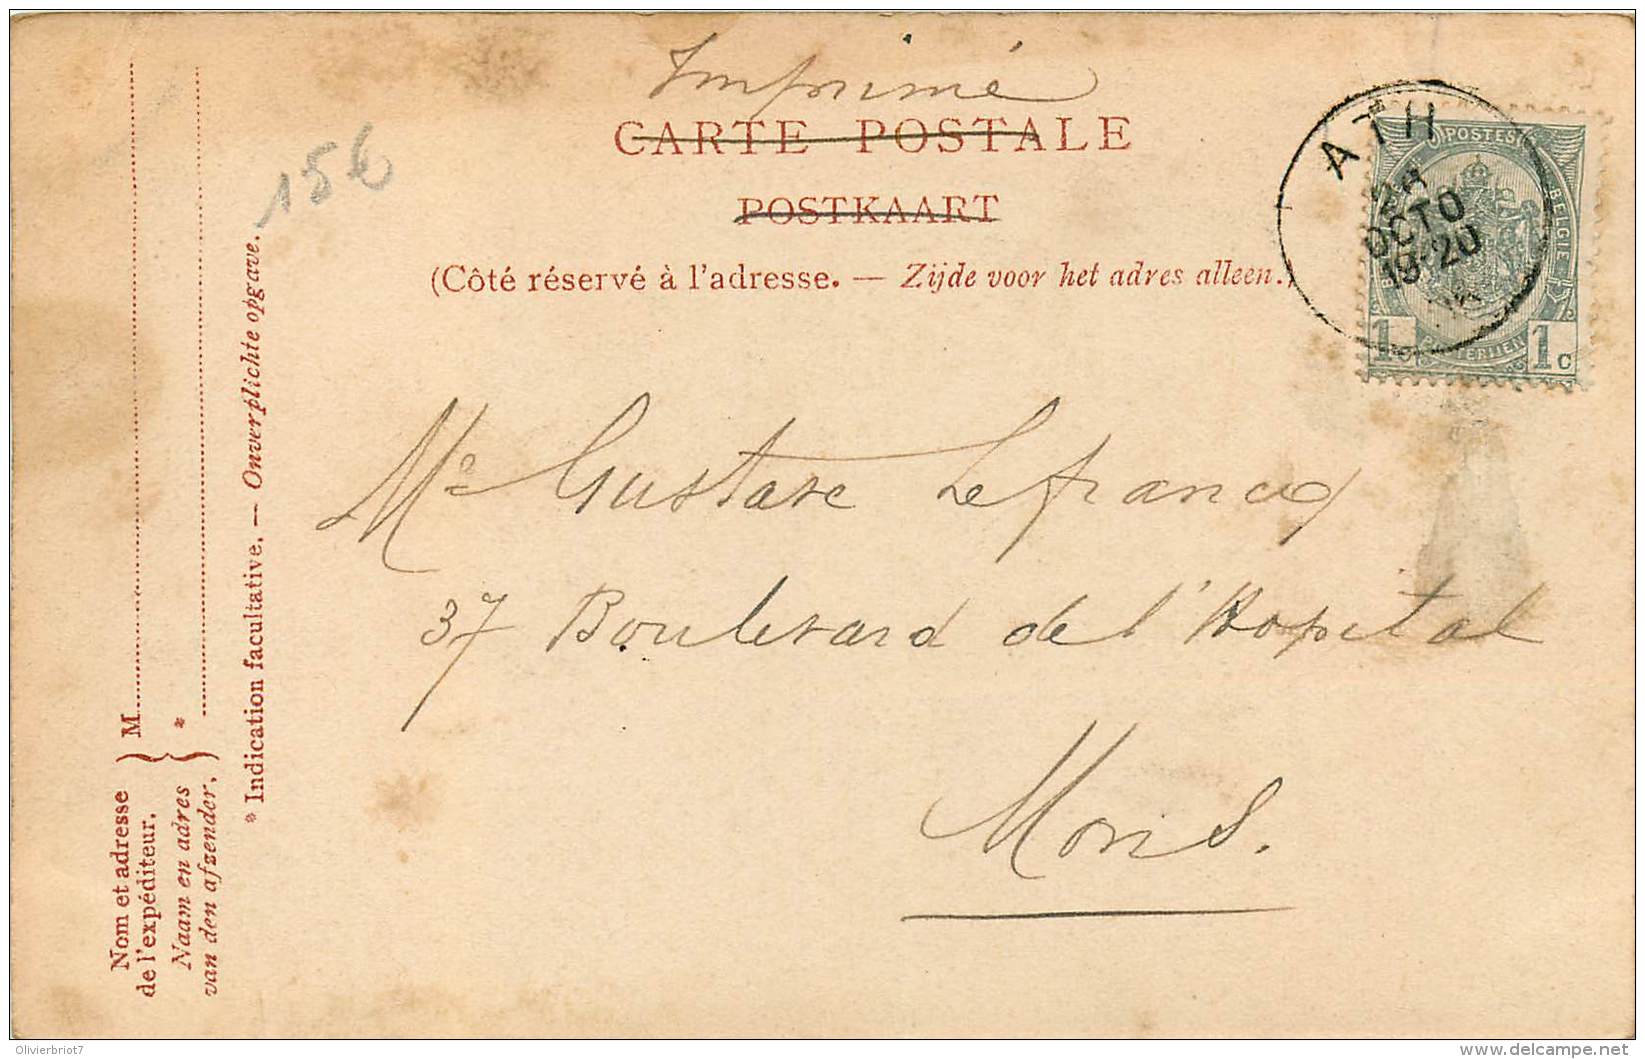 Imprimé
CARTE POSTALE
POSTKAART
(Côté réservé à l'adresse. — Zijde voor het adres alleen.)
15€
ATH
OCTO
19-20
POSTES
BELGIE
1
1c
Mr Gustave Lefrancq
37 Boulevard de l'Hopital
Mons.
Nom et adresse
de l'expéditeur.
M
Naam en adres
van den afzender.
*
* Indication facultative. — Onverplichte opgave.
Olivierbriot7
delcampe.net